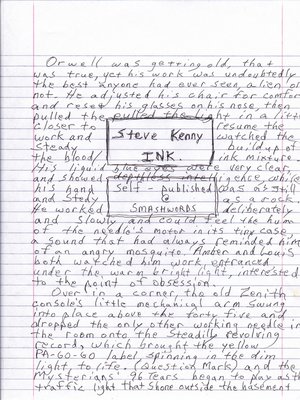 Orwell was getting old, that
was true, yet his work was undoubtedly
the best anyone had ever seen, alien or
not. He adjusted his chair for comfort
and reset his glasses on his nose, then
pulled the light in a little
closer to resume the
work and watched the
steady buildup of
the blood/ ink mixture.
His liquid blue eyes were very clear
and showed intelligence, while
his hand was as still
and steady as a rock.
He worked deliberately
and slowly, and could feel the hum
of the needle's motor in its tiny case,
a sound that had always reminded him
of an angry mosquito. Amber and Louis
both watched him work, entranced
under the warm bright light, interested
to the point of obsession.
Over in a corner, the old Zenith
console's little mechanical arm swung
into place above the forty five and
dropped the only other working needle in
the room onto the steadily revolving
record, which brought the yellow
PA-GO-GO label, spinning in the dim
light, to life. (Question Mark) and the
Mysterians' 96 Tears began to play as the
traffic light that shone outside the basement
Steve Kenny
INK.
Self-published
@
SMASHWORDS